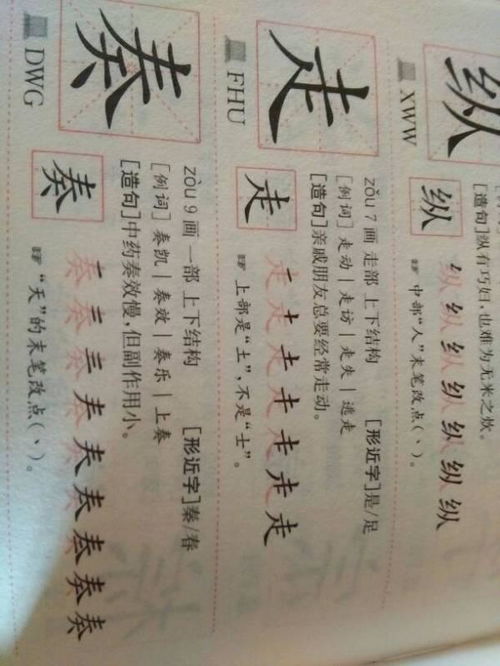 纵
[造句]纵有巧妇,也难为无米之炊。
纵
XWW
☞ 中部“人”末笔改点(丶)。
走
zǒu 7画 走部 上下结构 [形近字]是/足
[例词]走动|走访|走失|逃走
[造句]亲戚朋友总要经常走动。
走
FHU
☞ 上部是“土”,不是“士”。
奏
zòu 9画 一部 上下结构 [形近字]秦/春
[例词]奏凯|奏效|奏乐|上奏
[造句]中药奏效慢,但副作用小。
奏
DWG
☞ “天”的末笔改点(丶)。